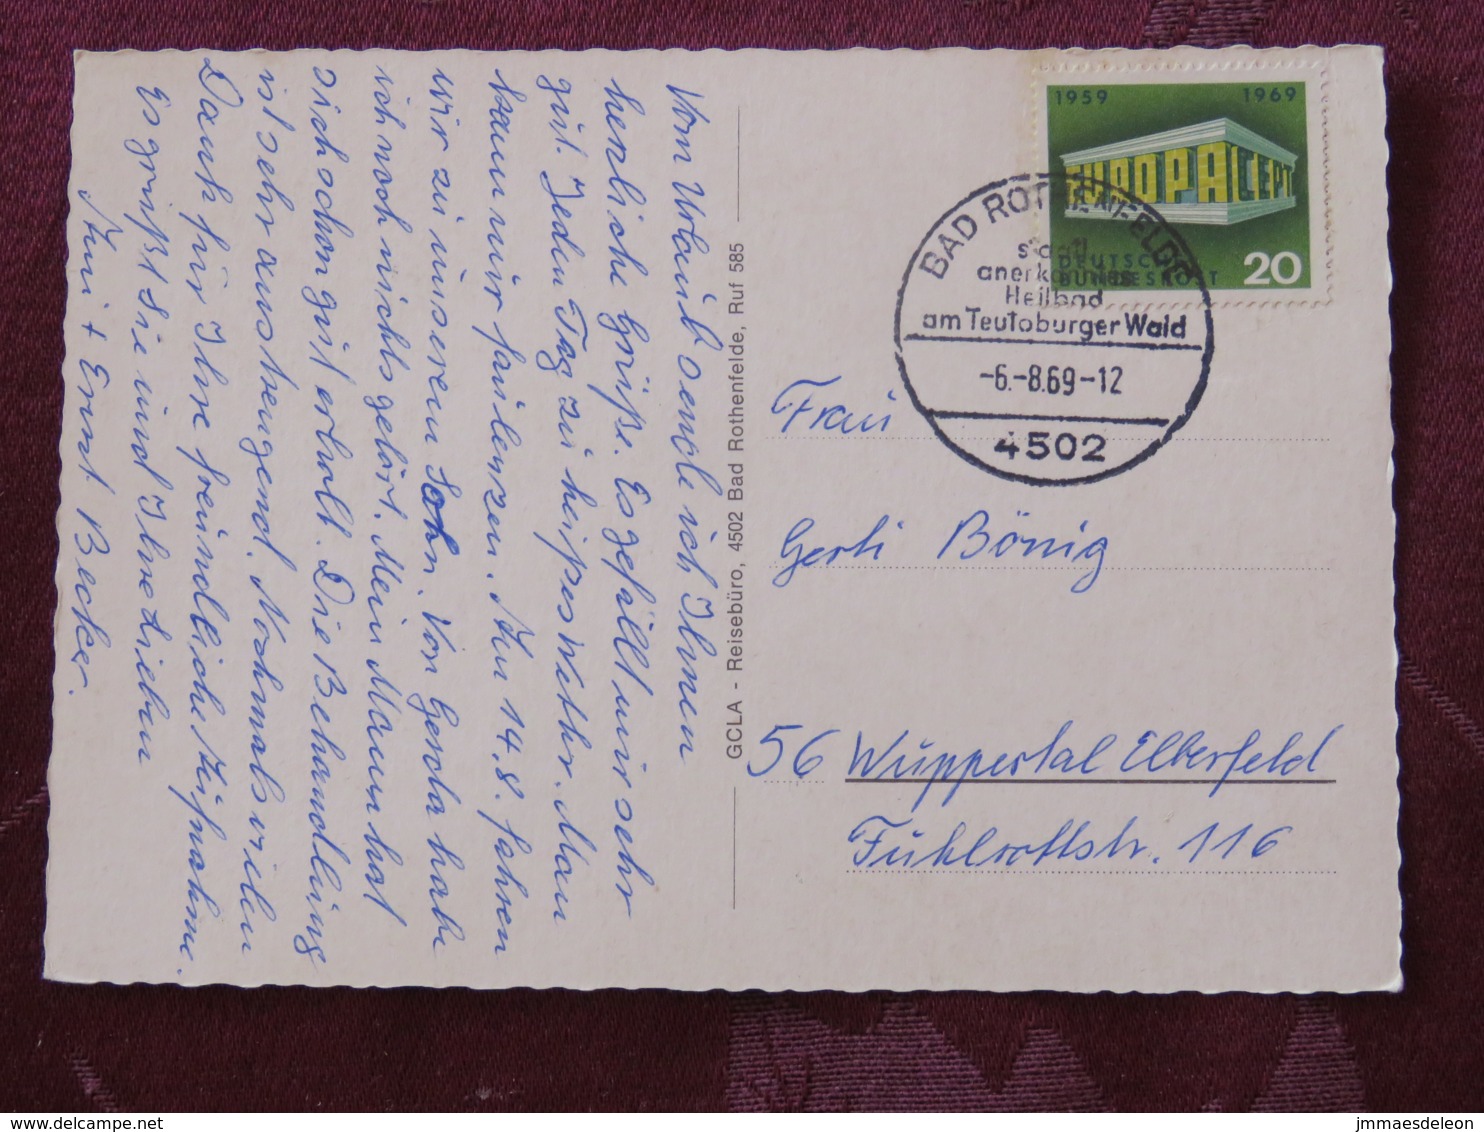 Vom Urlaub sende ich Ihnen
herzliche Grüße. Es gefällt mir sehr
gut. Jeden Tag zu heißes Wetter. Man
kann nur faulenzen. Am 14.8. fahren
wir zu unserem Sohn. Von Gerda habe
ich noch nichts gehört. Mein Mann hat
sich schon gut erholt. Die Behandlung
ist sehr anstrengend. Nochmals vielen
Dank für Ihre freundliche Aufnahme.
Es grüßt Sie und Ihre Lieben
Anni + Ernst Becker.
GCLA - Reisebüro, 4502 Bad Rothenfelde, Ruf 585
1959 1969
EUROPA CEPT
DEUTSCHE
BUNDESPOST 20
BAD ROTHENFELDE
staatl
anerkanntes
Heilbad
am Teutoburger Wald
-6.-8.69-12
4502
Frau
Gerti Bönig
56 Wuppertal Elberfeld
Fuhlrottstr. 116
jmmaesdeleon